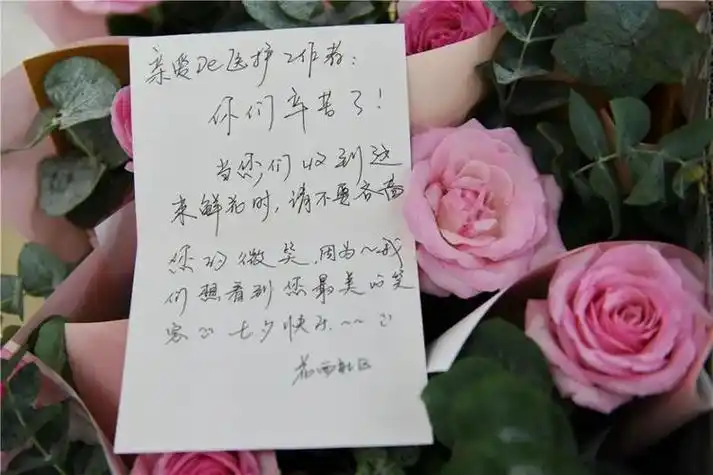 亲爱De医护工作者：
你们辛苦了！
当您们收到这
来鲜花时，请不要吝啬
您的微笑，因为~我
们想看到您最美的笑
容☺七夕快乐~~☺
苑西社区